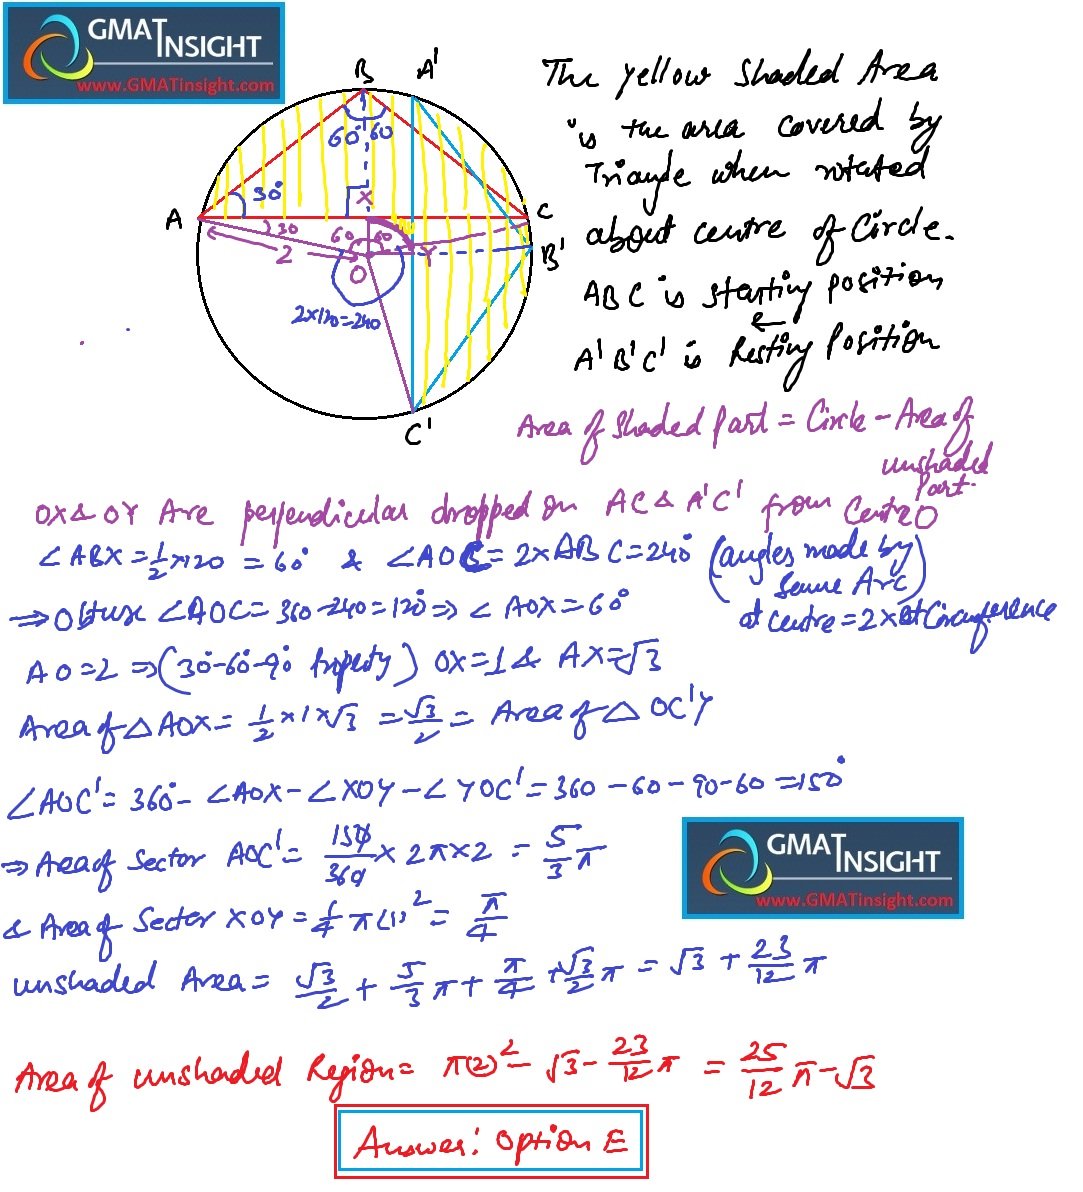 GMAT INSIGHT
www.GMATinsight.com
B A'
60° 60
30°
A X C
30 60 60 Y B'
2 O
2×120=240
C'
The Yellow Shaded Area
is the area covered by
Triangle when rotated
about centre of Circle.
ABC is starting position
A'B'C' is Resting Position
Area of Shaded Part = Circle - Area of
unshaded
Part.
OX & OY Are perpendicular dropped on AC & A'C' from Centre O
∠ABX = 1/2×120 = 60° & ∠AOC = 2×ABC = 240° (angles made by
Same Arc)
at centre = 2× at Circumference
⇒ Obtuse ∠AOC = 360-240 = 120° ⇒ ∠AOX = 60°
AO = 2 ⇒ (30°-60°-90° Property) OX = 1 & AX = √3
Area of △AOX = 1/2 × 1 × √3 = √3/2 = Area of △OC'Y
∠AOC' = 360° - ∠AOX - ∠XOY - ∠YOC' = 360 - 60 - 90 - 60 = 150°
⇒ Area of Sector AOC' = 150/360 × 2π×2 = 5/3 π
GMAT INSIGHT
www.GMATinsight.com
& Area of Sector XOY = 1/4 π(1)² = π/4
unshaded Area = √3/2 + 5/3 π + π/4 + √3/2 π = √3 + 23/12 π
Area of unshaded Region = π(2)² - √3 - 23/12 π = 25/12 π - √3
Answer: Option E